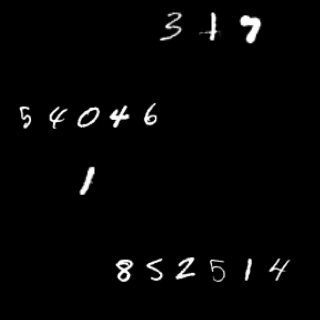 317
54046
1
852514